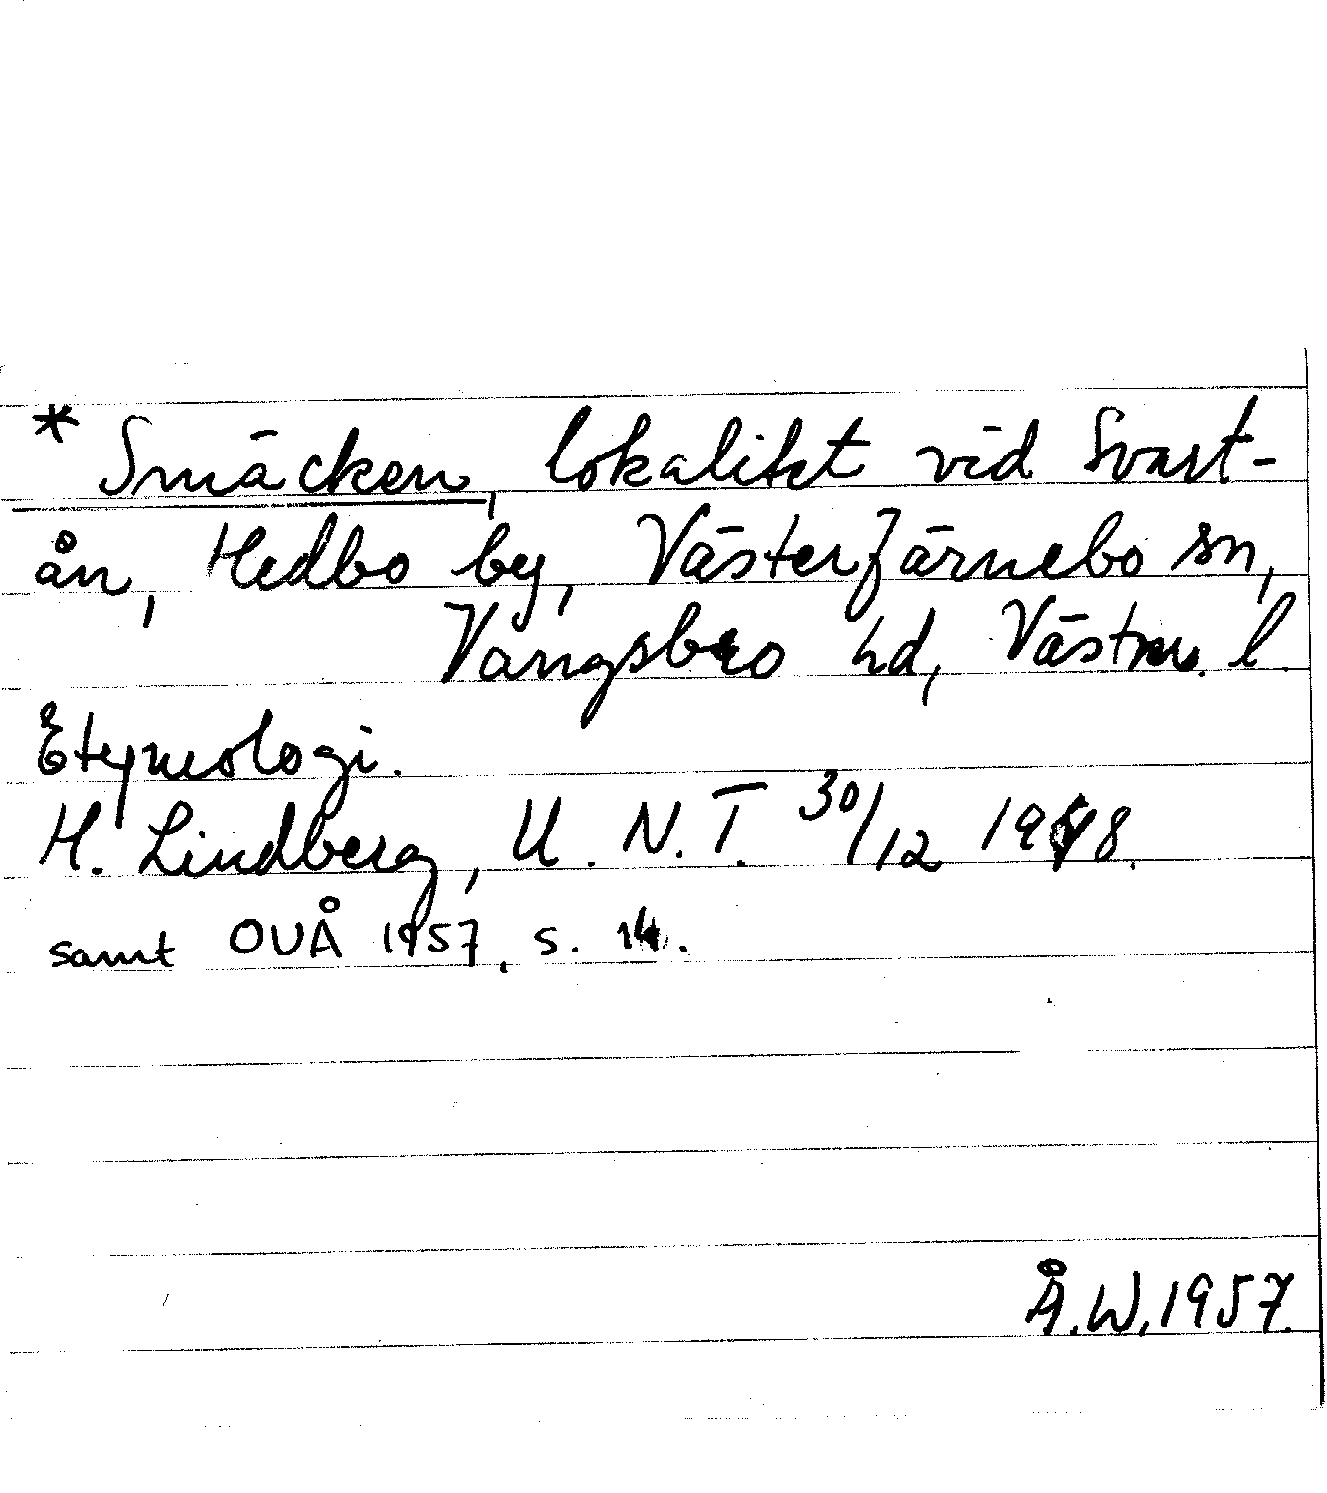 * Smäcken, lokalitet vid Svart-
ån, Hedbo by, Västerfärnebo sn,
Vangsbro hd, Västm. l.
Etymologi.
H. Lindberg, U. N. T. 30/12 1948.
samt OUÅ 1957, s. 14.
Å.W. 1957.